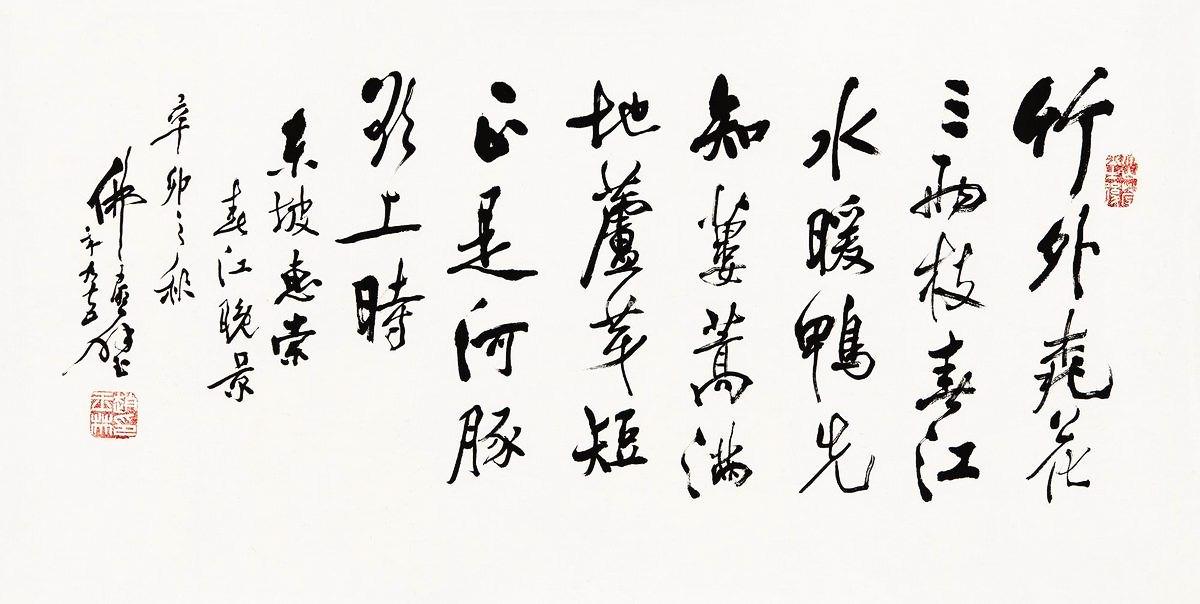 竹外桃花
三兩枝春江
水暖鴨先
知蔞蒿滿
地蘆芽短
正是河豚
欲上時
東坡惠崇
春江晚景
辛卯之秋
佛
年九十五
趙玉林印